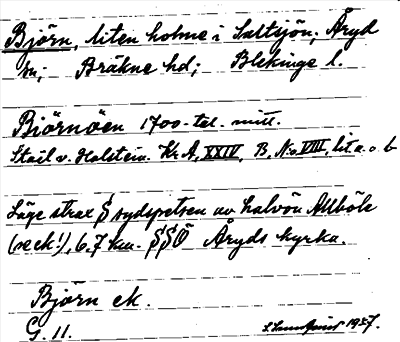 Björn, liten holme i Saltsjön; Åryd
sn; Bräkne hd; Blekinge l.
Biörnöen 1700-tal. mitt.
Stael v. Holstein. Kr. A, XXIV, B, No VIII, lit a. o b
Läge strax S sydspetsen av halvön Allböle
(se ek!), 6,7 km. SSÖ Åryds kyrka.
Björn ek.
G. 11.
1927.